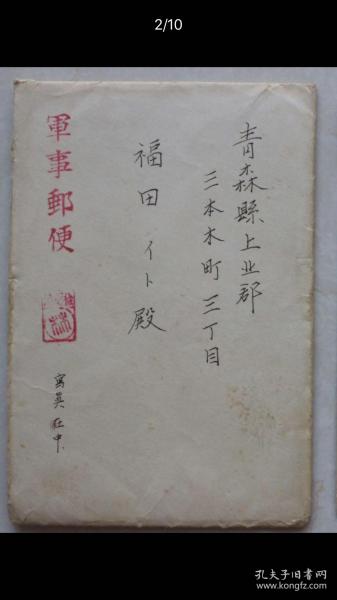 2/10
青森縣上北郡
三本木町三丁目
福田イト殿
軍事郵便
寫眞在中
孔夫子旧书网
www.kongfz.com